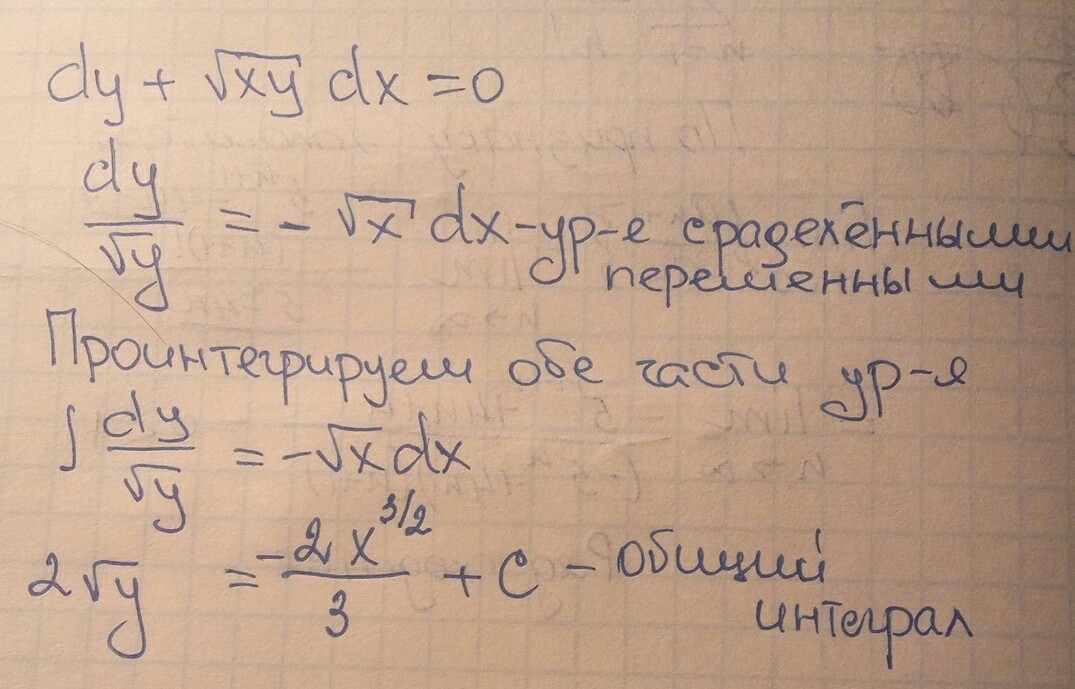 dy + √xy dx = 0
dy/√y = - √x dx - ур-е с разделёнными
переменными
Проинтегрируем обе части ур-я
∫ dy/√y = -√x dx
2√y = -2x^3/2/3 + C - общий
интеграл